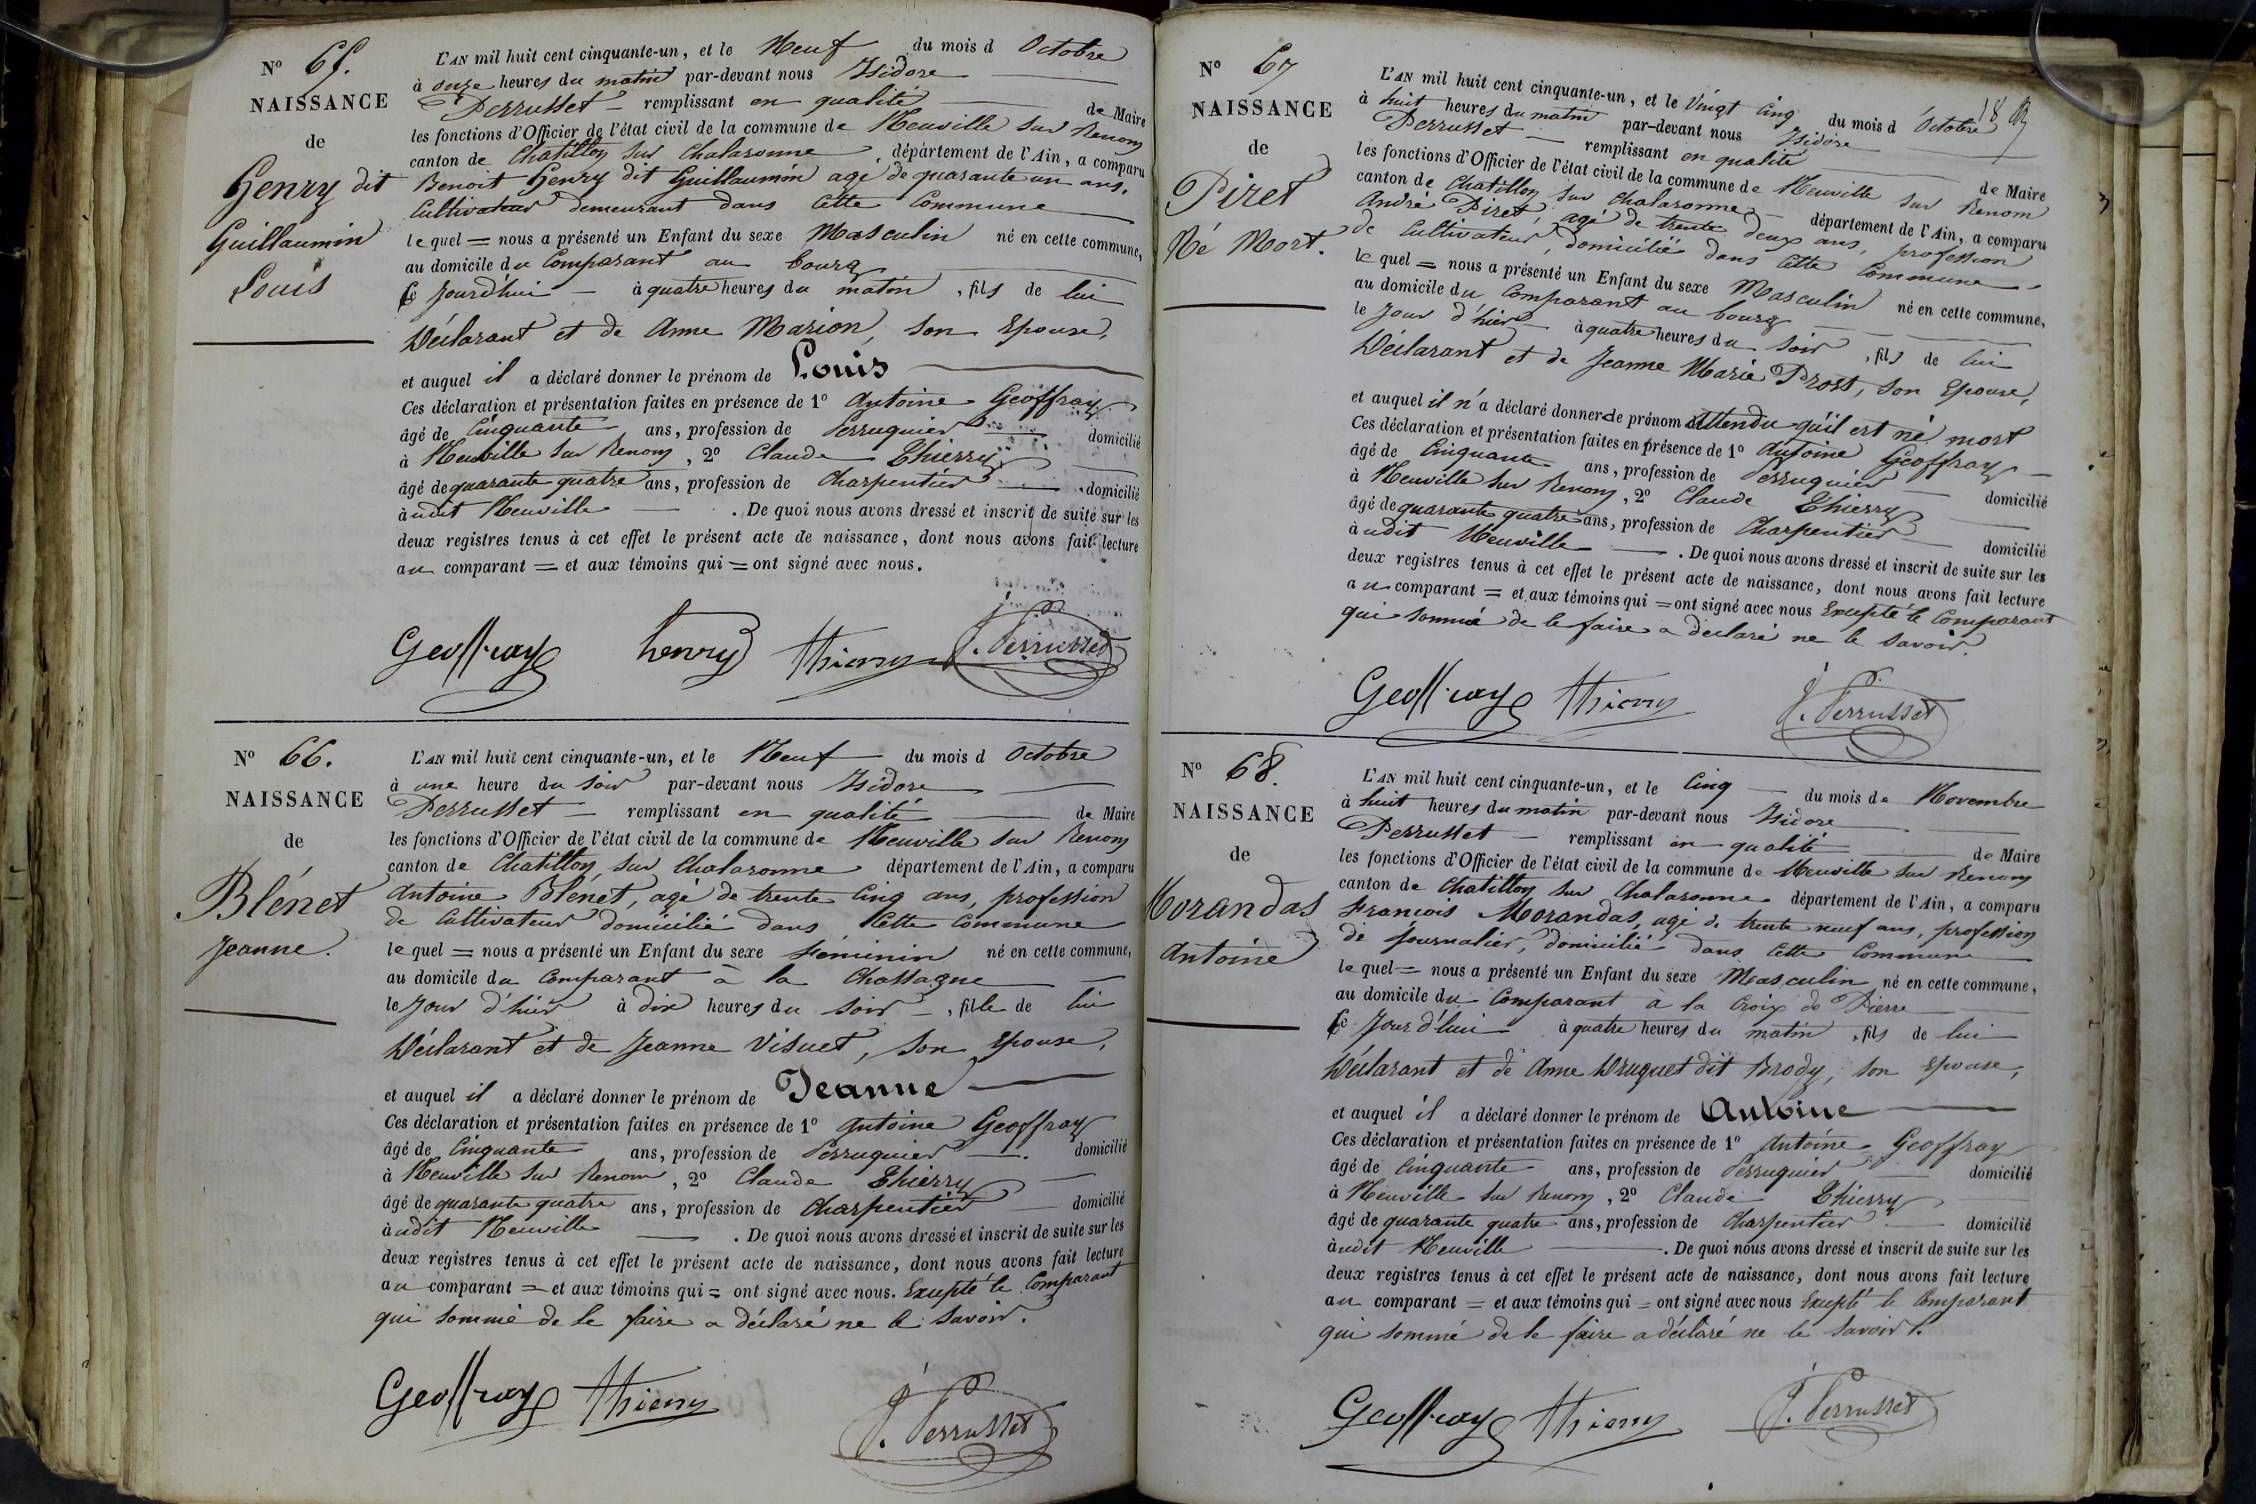 N° 65.
NAISSANCE
de
Henry dit
Guillaumin
Louis
L'AN mil huit cent cinquante-un, et le Neuf du mois d Octobre
à onze heures du matin par-devant nous Isidore
Perrusset remplissant en qualité de Maire
les fonctions d'Officier de l'état civil de la commune de Neuville sur Renom
canton de Chatillon sur Chalaronne, département de l'Ain, a comparu
Benoit Henry dit Guillaumin agé de quarante un ans,
Cultivateur demeurant dans Cette Commune
le quel = nous a présenté un Enfant du sexe Masculin né en cette commune,
au domicile du Comparant au bourg
Ce Jourd'hui à quatre heures du matin, fils de lui
Déclarant et de Anne Marion, son Epouse,
et auquel il a déclaré donner le prénom de Louis
Ces déclaration et présentation faites en présence de 1° Antoine Geoffray
âgé de Cinquante ans, profession de Perruquier domicilié
à Neuville sur Renom, 2° Claude Thierry
âgé de quarante quatre ans, profession de Charpentier domicilié
àudit Neuville. De quoi nous avons dressé et inscrit de suite sur les
deux registres tenus à cet effet le présent acte de naissance, dont nous avons fait lecture
au comparant = et aux témoins qui = ont signé avec nous.
Geoffray henry Thierry J. Perrusset
N° 66.
NAISSANCE
de
Blénet
Jeanne.
L'AN mil huit cent cinquante-un, et le Neuf du mois d Octobre
à une heure du soir par-devant nous Isidore
Perrusset remplissant en qualité de Maire
les fonctions d'Officier de l'état civil de la commune de Neuville sur Renom
canton de Chatillon sur Chalaronne département de l'Ain, a comparu
Antoine Blénet, agé de trente Cinq ans, profession
de Cultivateur domicilié dans Cette Commune
le quel = nous a présenté un Enfant du sexe féminin né en cette commune,
au domicile du Comparant à la Chassagne
le Jour d'hier à dix heures du soir, fille de lui
Déclarant et de Jeanne Visuet, son Epouse,
et auquel il a déclaré donner le prénom de Jeanne
Ces déclaration et présentation faites en présence de 1° Antoine Geoffray
âgé de Cinquante ans, profession de Perruquier domicilié
à Neuville sur Renom, 2° Claude Thierry
âgé de quarante quatre ans, profession de Charpentier domicilié
àudit Neuville. De quoi nous avons dressé et inscrit de suite sur les
deux registres tenus à cet effet le présent acte de naissance, dont nous avons fait lecture
au comparant = et aux témoins qui = ont signé avec nous. Excepté le Comparant
qui sommé de le faire a déclaré ne le savoir.
Geoffray Thierry J. Perrusset
N° 67
NAISSANCE
de
Piret
Né Mort.
L'AN mil huit cent cinquante-un, et le Vingt Cinq du mois d Octobre
à huit heures du matin par-devant nous Isidore
Perrusset remplissant en qualité de Maire
les fonctions d'Officier de l'état civil de la commune de Neuville sur Renom
canton de Chatillon sur Chalaronne département de l'Ain, a comparu
André Piret, agé de trente deux ans, profession
de Cultivateur, domicilié dans Cette Commune
le quel = nous a présenté un Enfant du sexe Masculin né en cette commune,
au domicile du Comparant au bourg
le Jour d'hier à quatre heures du soir, fils de lui
Déclarant et de Jeanne Marie Prost, son Epouse,
et auquel il n'a déclaré donner de prénom Attendu qu'il est né mort
Ces déclaration et présentation faites en présence de 1° Antoine Geoffray
âgé de Cinquante ans, profession de Perruquier domicilié
à Neuville sur Renom, 2° Claude Thierry
âgé de quarante quatre ans, profession de Charpentier domicilié
àudit Neuville. De quoi nous avons dressé et inscrit de suite sur les
deux registres tenus à cet effet le présent acte de naissance, dont nous avons fait lecture
au comparant = et aux témoins qui = ont signé avec nous Excepté le Comparant
qui sommé de le faire a déclaré ne le savoir.
Geoffray Thierry J. Perrusset
N° 68.
NAISSANCE
de
Morandas
Antoine
L'AN mil huit cent cinquante-un, et le Cinq du mois de Novembre
à huit heures du matin par-devant nous Isidore
Perrusset remplissant en qualité de Maire
les fonctions d'Officier de l'état civil de la commune de Neuville sur Renom
canton de Chatillon sur Chalaronne département de l'Ain, a comparu
François Morandas, agé de trente neuf ans, profession
de Journalier, domicilié dans Cette Commune
le quel = nous a présenté un Enfant du sexe Masculin né en cette commune,
au domicile du Comparant à la Croix de Pierre
Ce Jour d'hui à quatre heures du matin, fils de lui
Déclarant et de Anne Druguet dit Brody, son Epouse,
et auquel il a déclaré donner le prénom de Antoine
Ces déclaration et présentation faites en présence de 1° Antoine Geoffray
âgé de Cinquante ans, profession de Perruquier domicilié
à Neuville sur Renom, 2° Claude Thierry
âgé de quarante quatre ans, profession de Charpentier domicilié
àudit Neuville. De quoi nous avons dressé et inscrit de suite sur les
deux registres tenus à cet effet le présent acte de naissance, dont nous avons fait lecture
au comparant = et aux témoins qui = ont signé avec nous Excepté le Comparant
qui sommé de le faire a déclaré ne le savoir.
Geoffray Thierry J. Perrusset